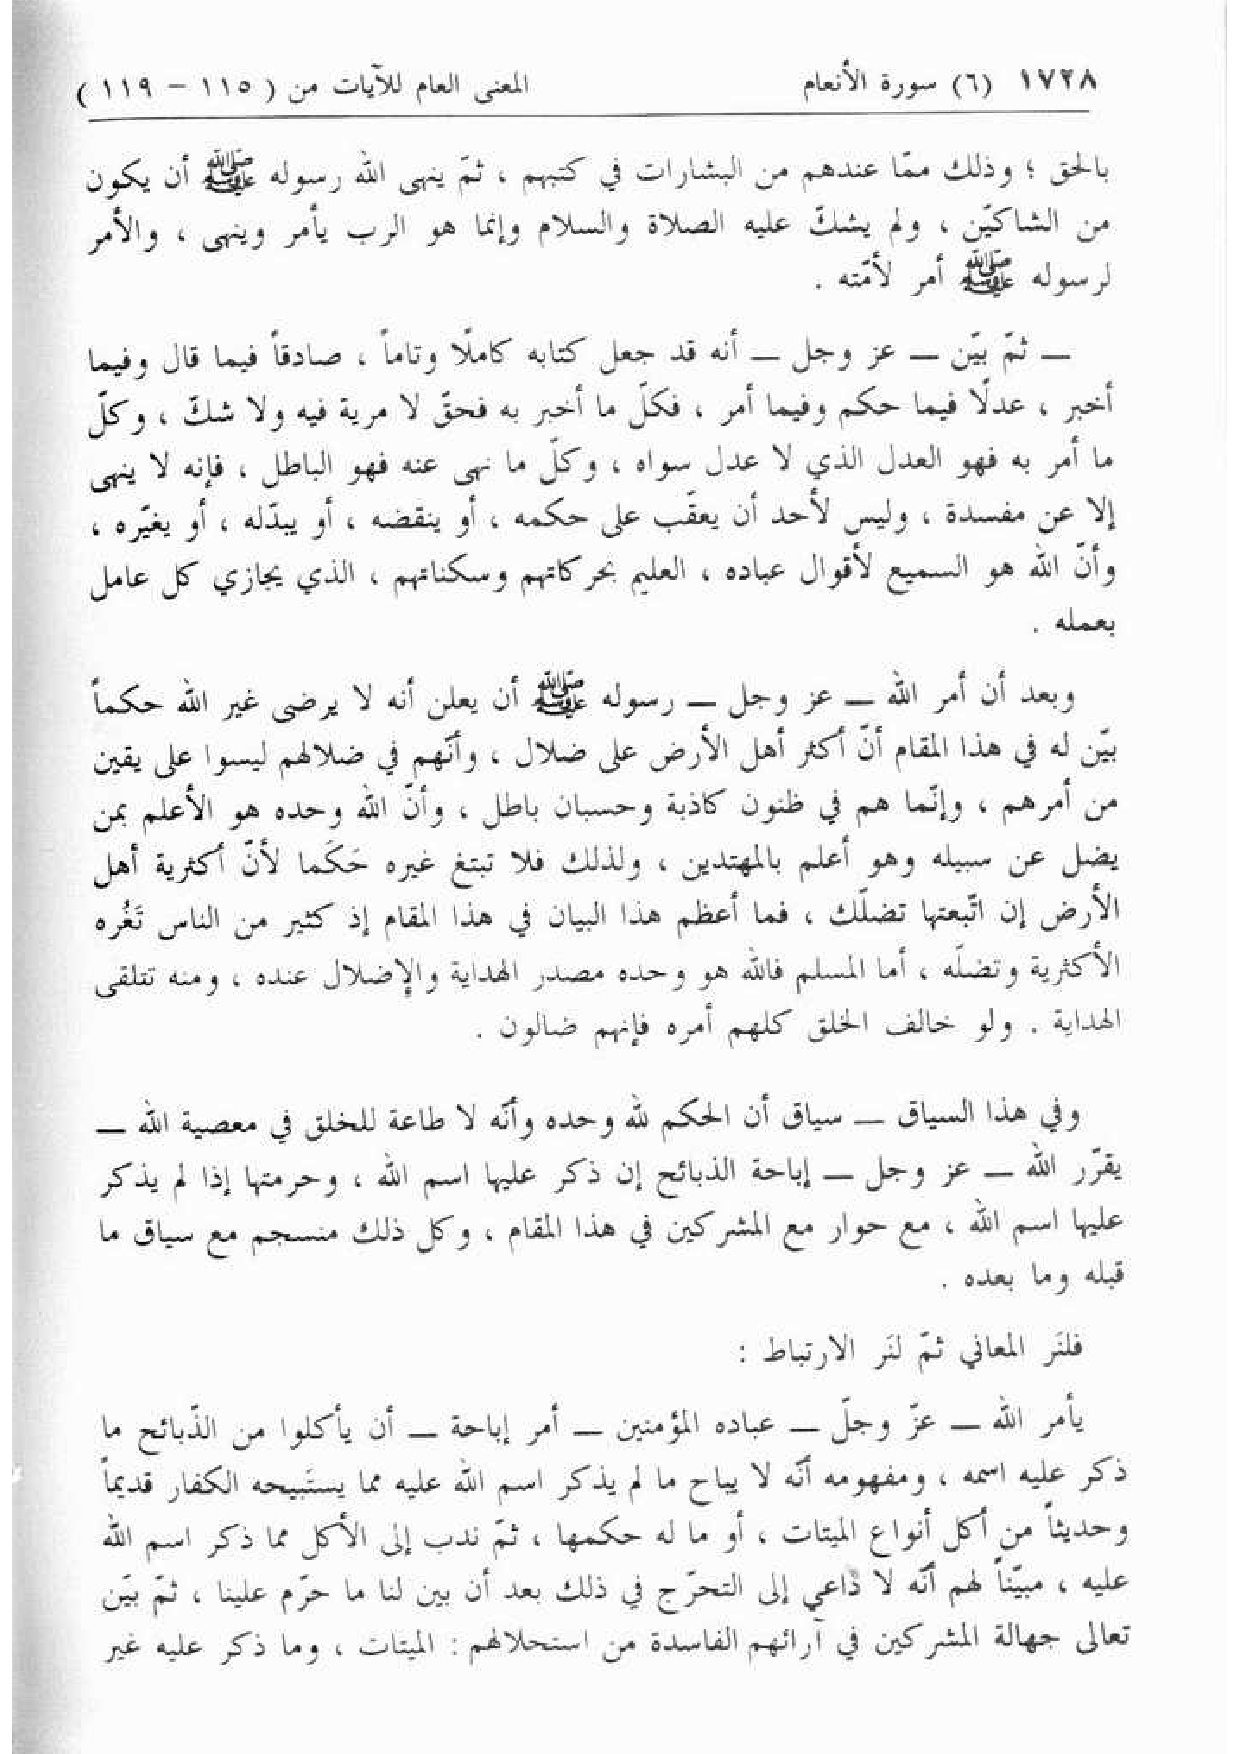 ١٧٢٨ (٦) سورة الأنعام المعنى العام للآيات من ( ١١٥ – ١١٩ )
بالحق ؛ وذلك ممّا عندهم من البشارات في كتبهم ، ثمّ ينهى الله رسوله ﷺ أن يكون
من الشاكيّن ، ولم يشكّ عليه الصلاة والسلام وإنما هو الرب يأمر وينهى ، والأمر
لرسوله ﷺ أمر لأمّته .
– ثمّ بيّن – عز وجل – أنه قد جعل كتابه كاملًا وتاماً ، صادقاً فيما قال وفيما
أخبر ، عدلًا فيما حكم وفيما أمر ، فكلّ ما أخبر به فحقّ لا مرية فيه ولا شكّ ، وكلّ
ما أمر به فهو العدل الذي لا عدل سواه ، وكلّ ما نهى عنه فهو الباطل ، فإنه لا ينهى
إلا عن مفسدة ، وليس لأحد أن يعقّب على حكمه ، أو ينقضه ، أو يبدّله ، أو يغيّره ،
وأنّ الله هو السميع لأقوال عباده ، العليم بحركاتهم وسكناتهم ، الذي يجازي كل عامل
بعمله .
وبعد أن أمر الله – عز وجل – رسوله ﷺ أن يعلن أنه لا يرضى غير الله حكماً
بيّن له في هذا المقام أنّ أكثر أهل الأرض على ضلال ، وأنّهم في ضلالهم ليسوا على يقين
من أمرهم ، وإنّما هم في ظنون كاذبة وحسبان باطل ، وأنّ الله وحده هو الأعلم بمن
يضل عن سبيله وهو أعلم بالمهتدين ، ولذلك فلا تبتغ غيره حَكَما لأنّ أكثرية أهل
الأرض إن اتّبعتها تضلّك ، فما أعظم هذا البيان في هذا المقام إذ كثير من الناس تَغُره
الأكثرية وتضلّه ، أما المسلم فالله هو وحده مصدر الهداية والإضلال عنده ، ومنه تتلقى
الهداية . ولو خالف الخلق كلهم أمره فإنهم ضالون .
وفي هذا السياق – سياق أن الحكم لله وحده وأنّه لا طاعة للخلق في معصية الله –
يقرّر الله – عز وجل – إباحة الذبائح إن ذكر عليها اسم الله ، وحرمتها إذا لم يذكر
عليها اسم الله ، مع حوار مع المشركين في هذا المقام ، وكل ذلك منسجم مع سياق ما
قبله وما بعده .
فلنَر المعاني ثمّ لنَر الارتباط :
يأمر الله – عزّ وجلّ – عباده المؤمنين – أمر إباحة – أن يأكلوا من الذّبائح ما
ذكر عليه اسمه ، ومفهومه أنّه لا يباح ما لم يذكر اسم الله عليه مما يستبيحه الكفار قديماً
وحديثاً من أكل أنواع الميتات ، أو ما له حكمها ، ثمّ ندب إلى الأكل مما ذكر اسم الله
عليه ، مبيّناً لهم أنّه لا داعي إلى التحرّج في ذلك بعد أن بين لنا ما حرّم علينا ، ثمّ بيّن
تعالى جهالة المشركين في آرائهم الفاسدة من استحلالهم : الميتات ، وما ذكر عليه غير